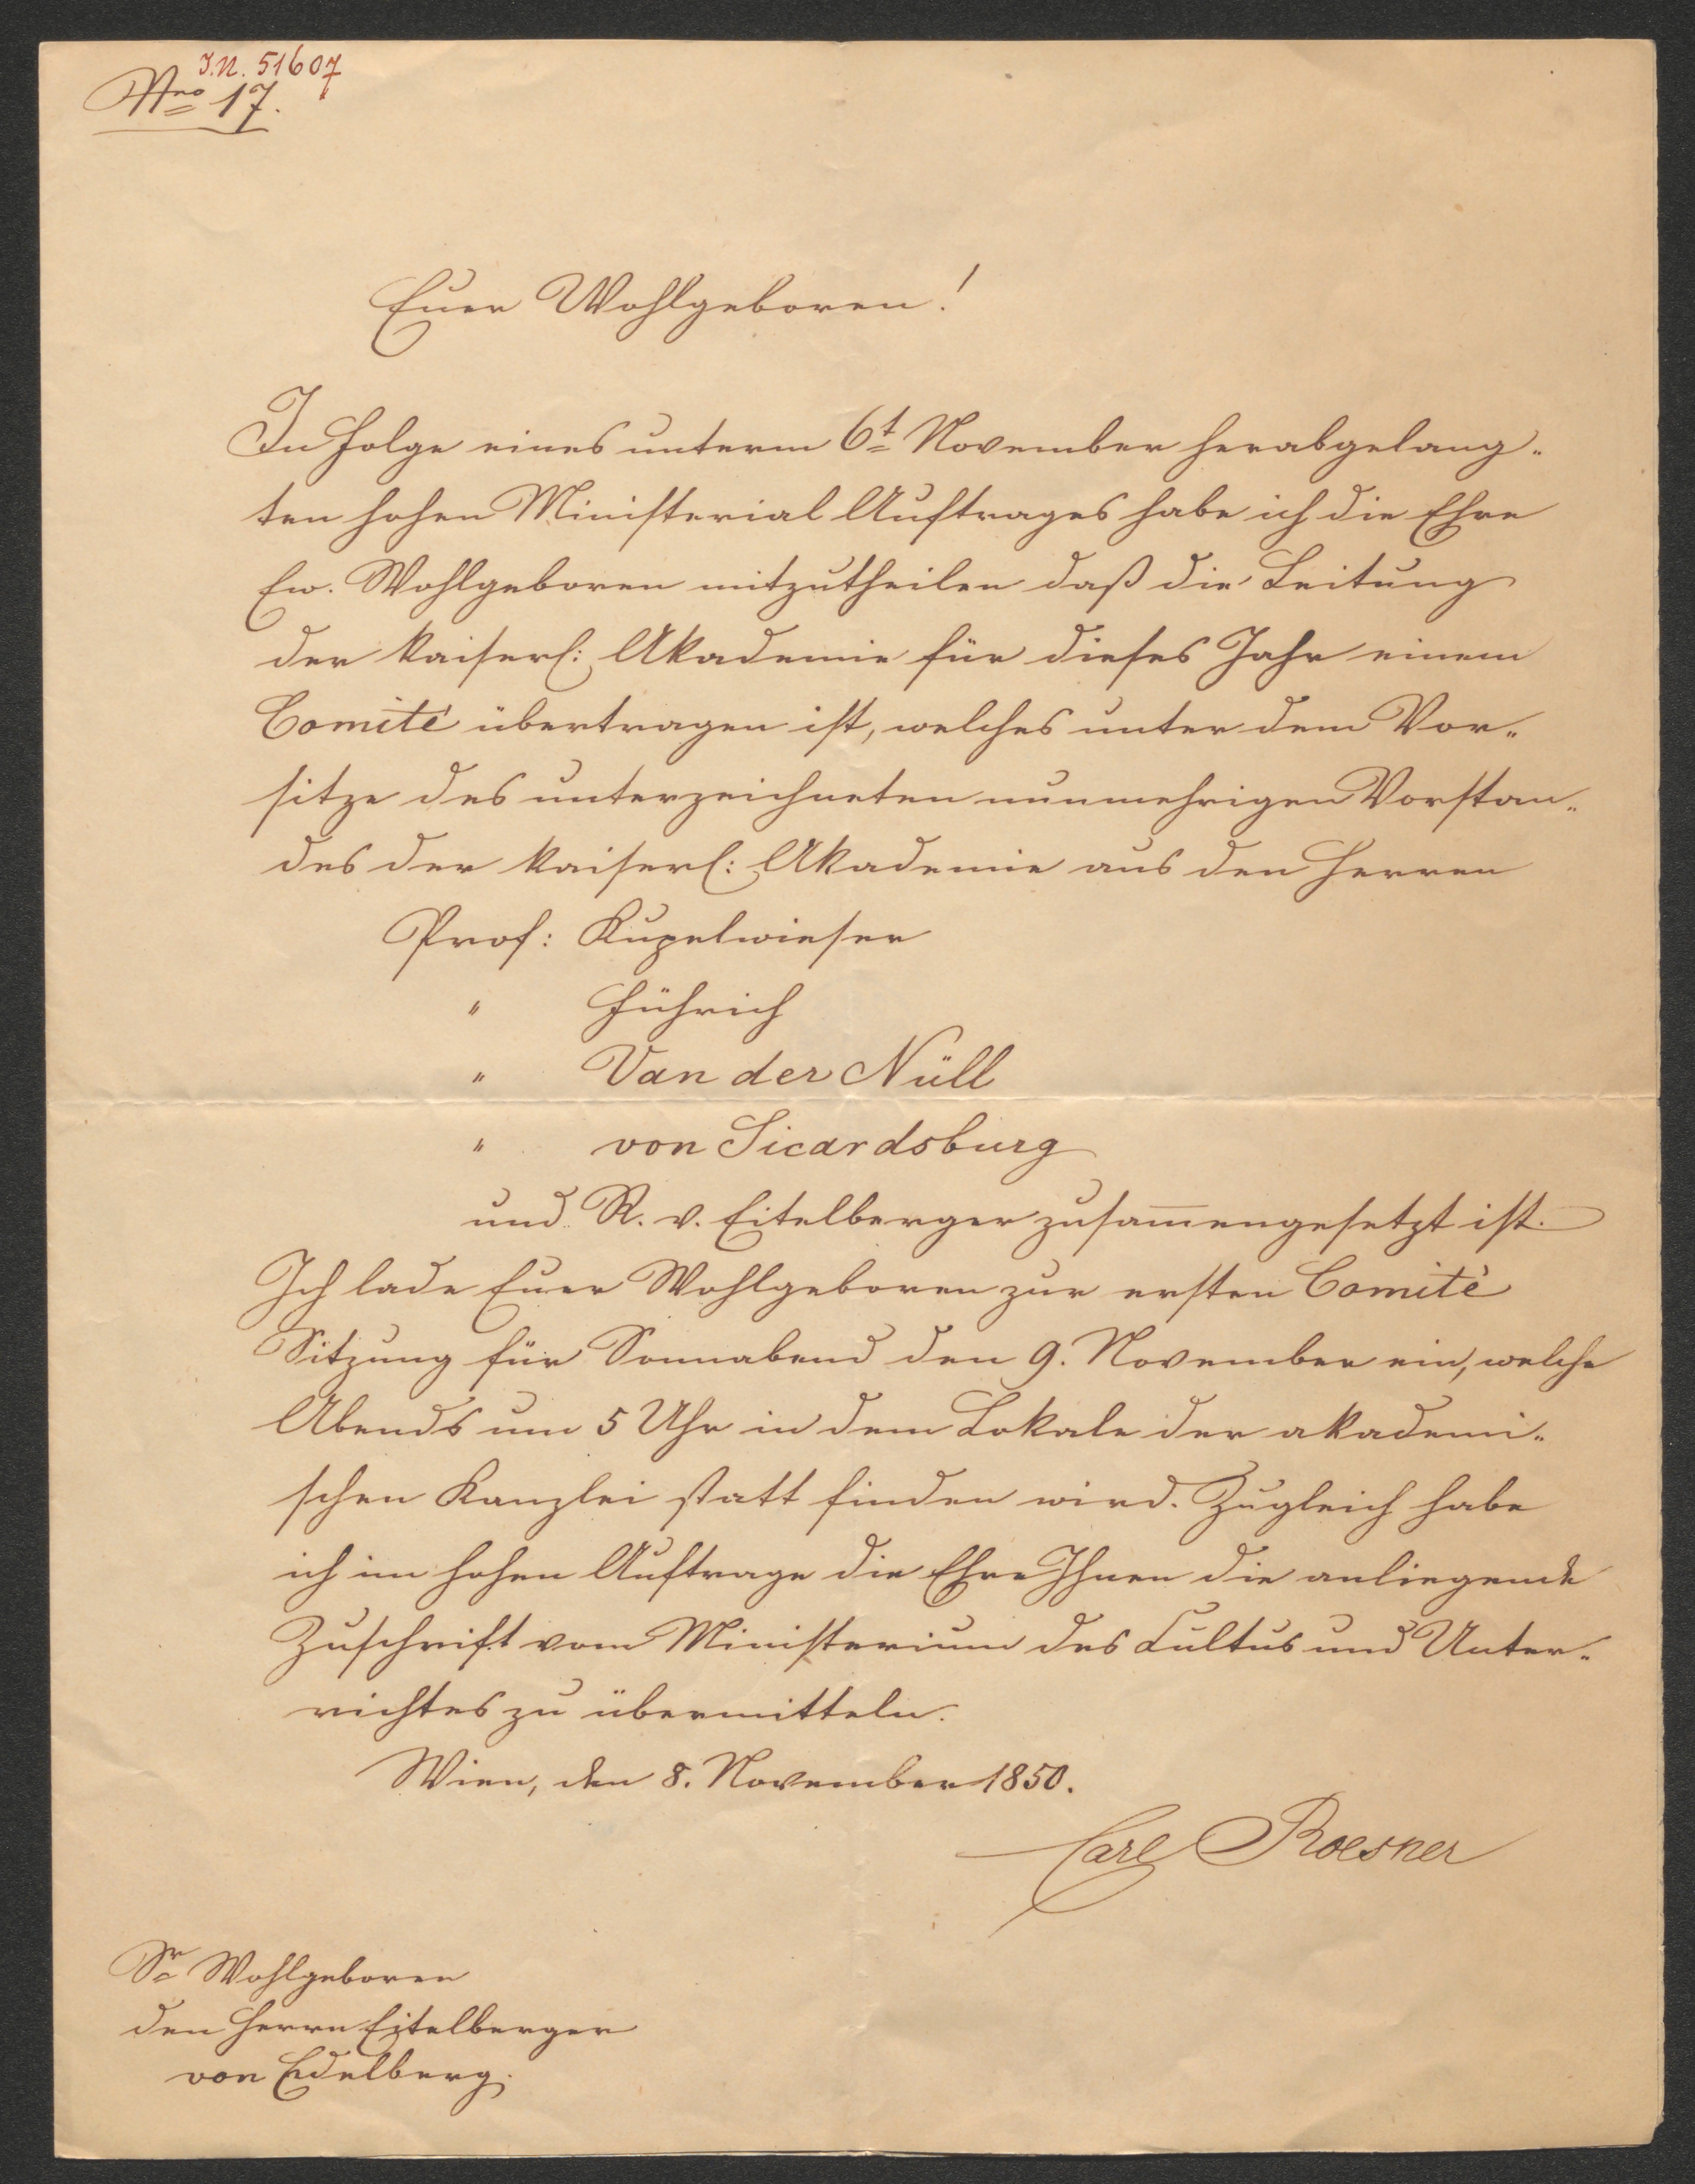 J.N. 51607
Nro 17.
Euer Wohlgeboren!
In Folge eines unterm 6t November herabgelang-
ten hohen Ministerial Auftrages habe ich die Ehre
Ew. Wohlgeboren mitzutheilen daß die Leitung
der kaiserl: Akademie für dieses Jahr einem
Comité übertragen ist, welches unter dem Vor-
sitze des unterzeichneten nunmehrigen Vorstan-
des der kaiserl: Akademie aus den Herren
Prof: Kupelwieser
" Führich
" Van der Nüll
" von Sicardsburg
und R. v. Eitelberger zusam̅engesetzt ist.
Ich lade Euer Wohlgeboren zur ersten Comité
Sitzung für Sonnabend den 9. November ein, welche
Abends um 5 Uhr in dem Lokale der akademi-
schen Kanzlei statt finden wird. Zugleich habe
ich im hohen Auftrage die Ehre Ihnen die anliegende
Zuschrift vom Ministerium des Cultus und Unter-
richtes zu übermitteln.
Wien, den 8. November 1850.
Carl Roesner
Sr Wohlgeboren
den Herrn Eitelberger
von Edelberg.